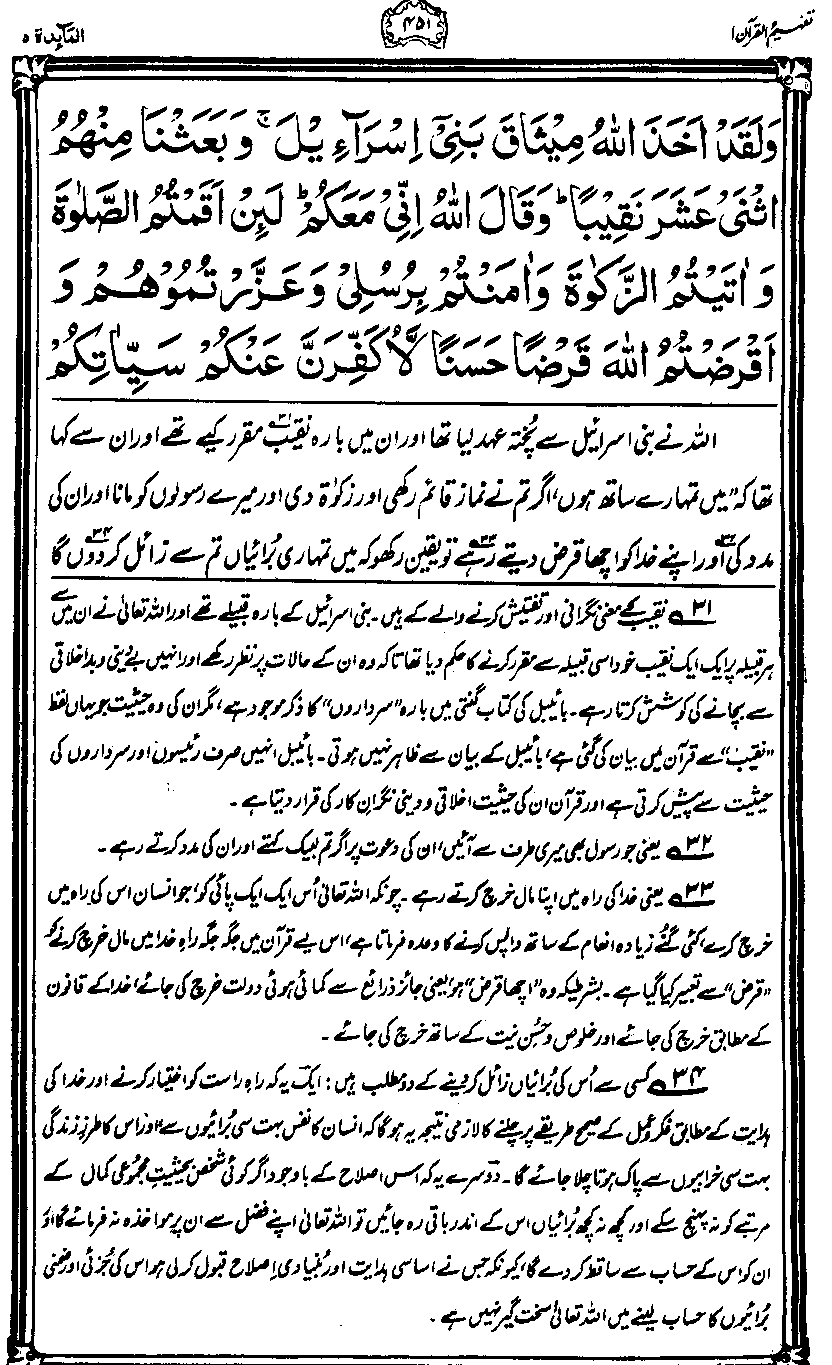 تفہیم القرآن ۱
۴۵۱
المآئدة ۵
وَلَقَدْ اَخَذَ اللّٰهُ مِيْثَاقَ بَنِيْٓ اِسْرَآءِيْلَ ۚ وَبَعَثْنَا مِنْهُمُ
اثْنَيْ عَشَرَ نَقِيْبًا ؕ وَقَالَ اللّٰهُ اِنِّيْ مَعَكُمْ ؕ لَىِٕنْ اَقَمْتُمُ الصَّلٰوةَ
وَاٰتَيْتُمُ الزَّكٰوةَ وَاٰمَنْتُمْ بِرُسُلِيْ وَعَزَّرْتُمُوْهُمْ وَ
اَقْرَضْتُمُ اللّٰهَ قَرْضًا حَسَنًا لَّاُكَفِّرَنَّ عَنْكُمْ سَيِّاٰتِكُمْ
اللہ نے بنی اسرائیل سے پختہ عہد لیا تھا اور ان میں بارہ نقیب۳۱ مقرر کیے تھے اور ان سے کہا
تھا کہ ”میں تمہارے ساتھ ہوں، اگر تم نے نماز قائم رکھی اور زکوٰۃ دی اور میرے رسولوں کو مانا اور ان کی
مدد کی۳۲ اور اپنے خدا کو اچھا قرض دیتے رہے۳۳ تو یقین رکھو کہ میں تمہاری بُرائیاں تم سے زائل کر دوں گا۳۴
۳۱ نقیب کے معنی نگرانی اور تفتیش کرنے والے کے ہیں۔ بنی اسرائیل کے بارہ قبیلے تھے اور اللہ تعالیٰ نے ان میں سے
ہر قبیلہ پر ایک ایک نقیب خود اسی قبیلہ سے مقرر کرنے کا حکم دیا تھا تاکہ وہ ان کے حالات پر نظر رکھے اور انہیں بے دینی و بد اخلاقی
سے بچانے کی کوشش کرتا رہے۔ بائیبل کی کتاب گنتی میں بارہ ”سرداروں“ کا ذکر موجود ہے، مگر ان کی وہ حیثیت جو یہاں لفظ
”نقیب“ سے قرآن میں بیان کی گئی ہے، بائیبل کے بیان سے ظاہر نہیں ہوتی۔ بائیبل انہیں صرف رئیسوں اور سرداروں کی
حیثیت سے پیش کرتی ہے اور قرآن ان کی حیثیت اخلاقی و دینی نگرانِ کار کی قرار دیتا ہے۔
۳۲ یعنی جو رسول بھی میری طرف سے آئیں، ان کی دعوت پر اگر تم لبیک کہتے اور ان کی مدد کرتے رہے۔
۳۳ یعنی خدا کی راہ میں اپنا مال خرچ کرتے رہے۔ چونکہ اللہ تعالیٰ اُس ایک ایک پائی کو، جو انسان اس کی راہ میں
خرچ کرے، کئی گنے زیادہ انعام کے ساتھ واپس کرنے کا وعدہ فرماتا ہے، اس لیے قرآن میں جگہ جگہ راہِ خدا میں مال خرچ کرنے کو
”قرض“ سے تعبیر کیا گیا ہے۔ بشرطیکہ وہ ”اچھا قرض“ ہو، یعنی جائز ذرائع سے کمائی ہوئی دولت خرچ کی جائے، خدا کے قانون
کے مطابق خرچ کی جائے اور خلوص و حُسنِ نیت کے ساتھ خرچ کی جائے۔
۳۴ کسی سے اُس کی بُرائیاں زائل کر دینے کے دو مطلب ہیں: ایک یہ کہ راہِ راست کو اختیار کرنے اور خدا کی
ہدایت کے مطابق فکر و عمل کے صحیح طریقے پر چلنے کا لازمی نتیجہ یہ ہوگا کہ انسان کا نفس بہت سی بُرائیوں سے، اور اس کا طرزِ زندگی
بہت سی خرابیوں سے پاک ہوتا چلا جائے گا۔ دوسرے یہ کہ اس اصلاح کے باوجود اگر کوئی شخص بحیثیتِ مجموعی کمال کے
مرتبے کو نہ پہنچ سکے اور کچھ نہ کچھ بُرائیاں اس کے اندر باقی رہ جائیں تو اللہ تعالیٰ اپنے فضل سے ان پر مواخذہ نہ فرمائے گا اور
ان کو اس کے حساب سے ساقط کر دے گا، کیونکہ جس نے اساسی ہدایت اور بُنیادی اصلاح قبول کر لی ہو اس کی جُزئی اور ضمنی
بُرائیوں کا حساب لینے میں اللہ تعالیٰ سخت گیر نہیں ہے۔